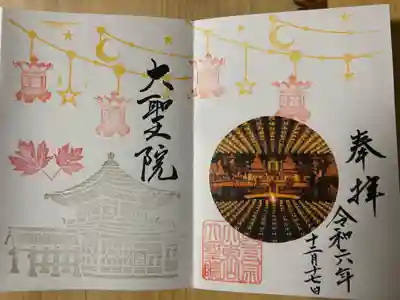 奉拝
令和六年
十二月十七日
大聖院